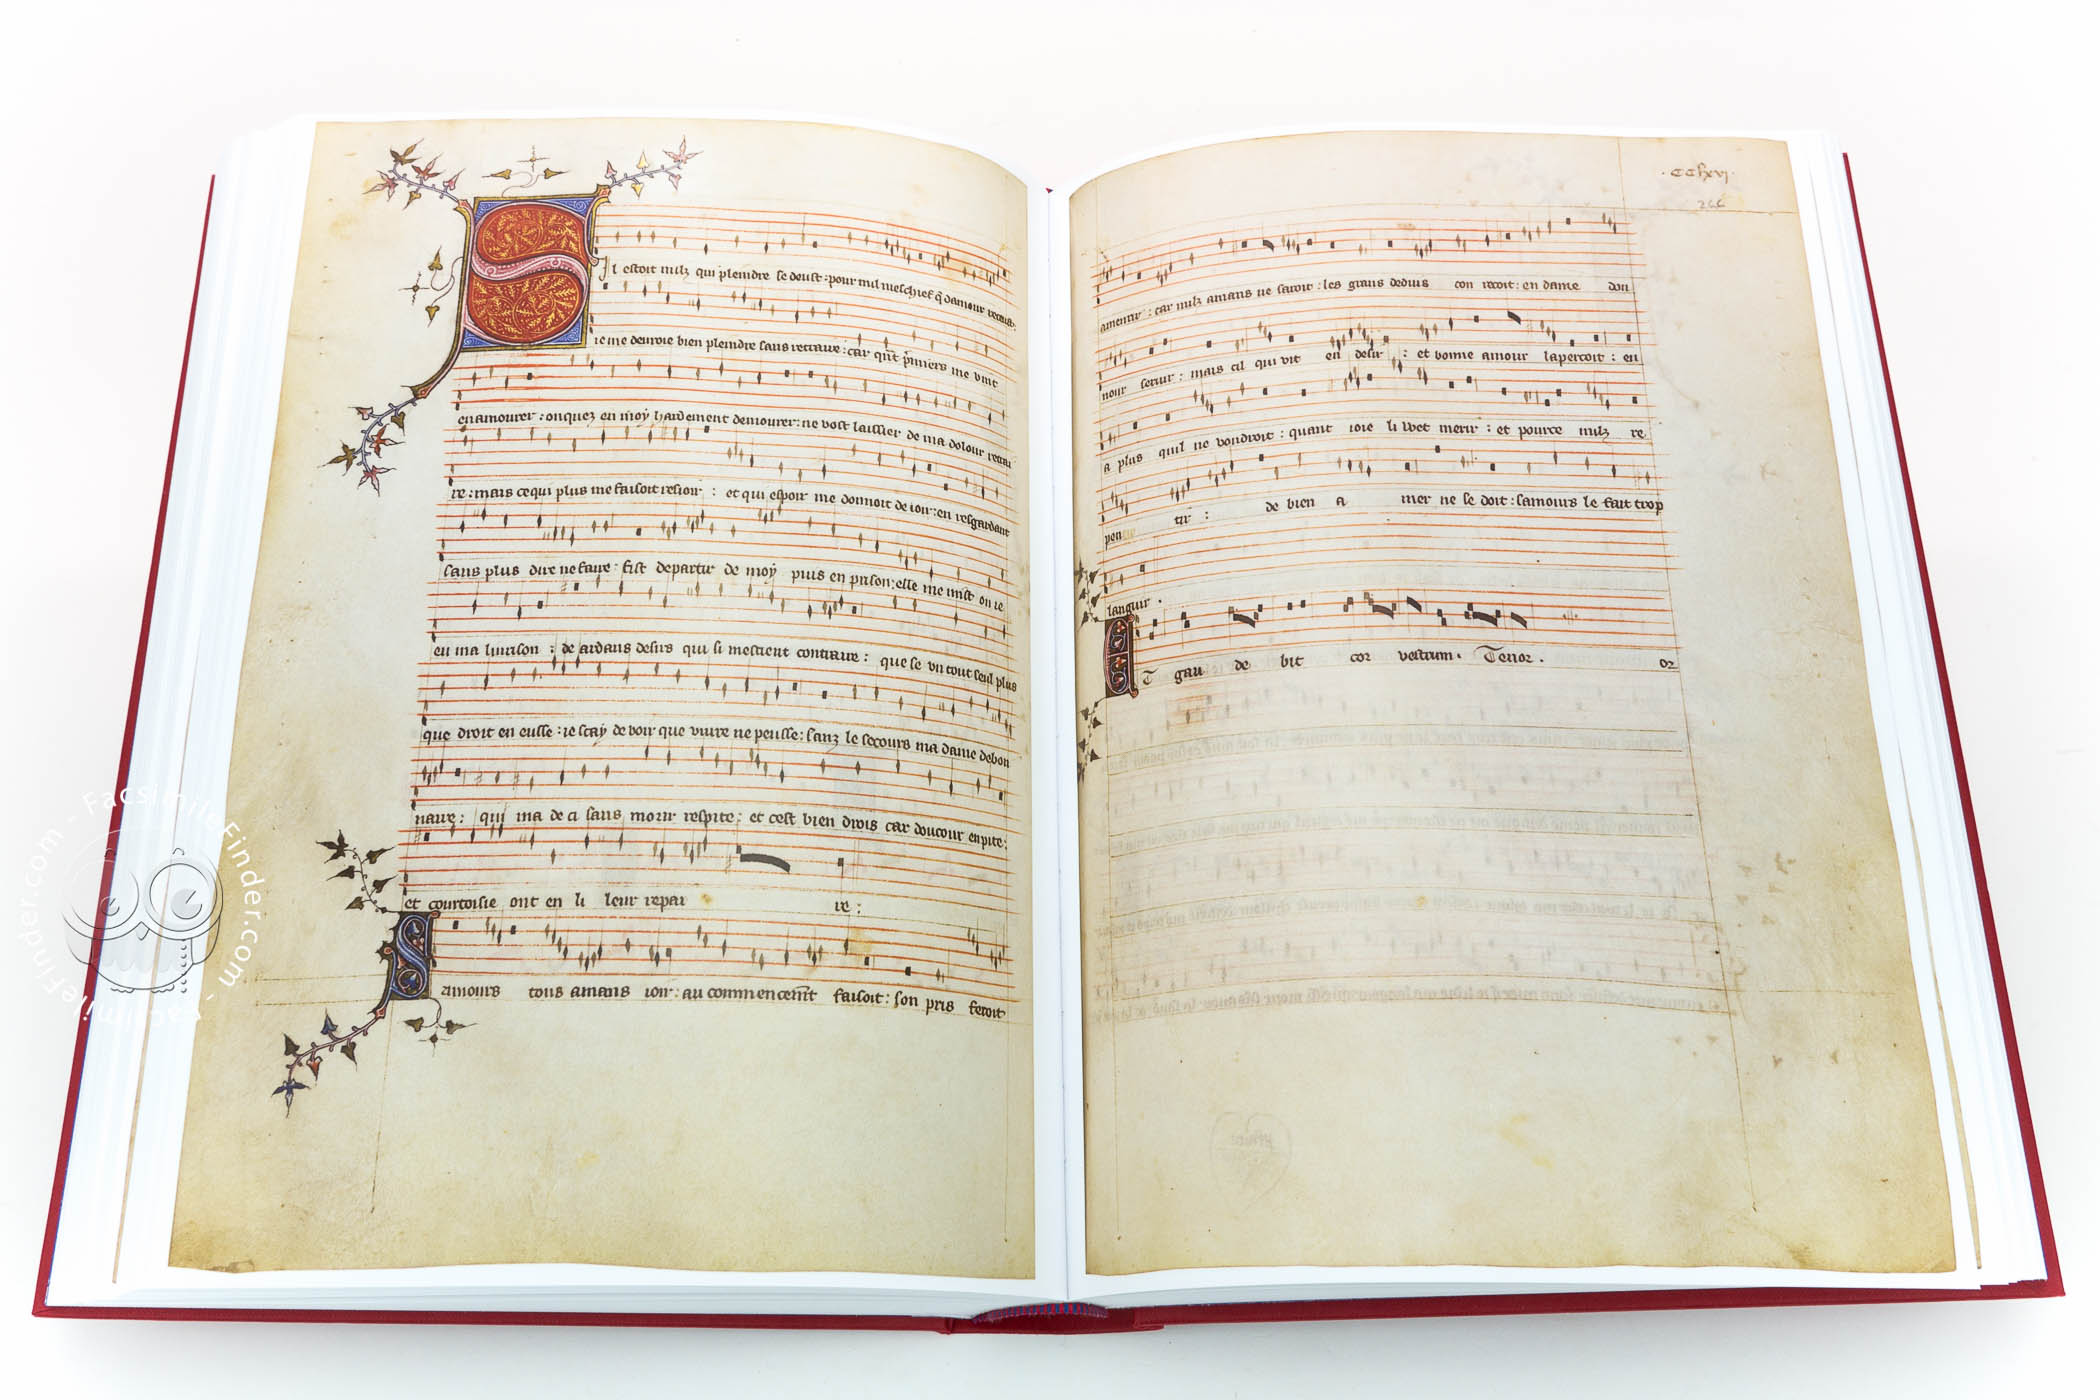 Il estoit nulz qui pleindre se deust : pour nul meschief
ie me devroie bien pleindre sans retraire : car q̄nt p̄miers me vint
enamourer : onquez en moÿ hardement demourer : ne vost laissier de ma dolour retrai
re : mais cequi plus me faisoit resioir : et qui espoir me donnoit de ioir : en resgardant
sans plus dire ne faire : fist departir de moÿ puis en prison : elle me mist ou ie
eu ma livrison : de ardans desirs qui si mestient contraire : que se un tout seul plus
que droit en eusse : ie scaÿ de voir que vivre ne peusse : sanz le secours ma dame debon
naire : qui ma de ci sans morir respite : et cest bien drois car doucour en pite :
et courtoisie ont en li leur repai re :
amours tous amans ioir : au commencem̄t faisoit : son pris feroit
CClxvi
266
amenrir : car nulz amans ne saroit : les grans deduis con recoit : en dame don
nour servir : mais cil qui vit en desir : et bonne amour lapercoit : en
a plus quil ne voudroit : quant ioie li vuet merir : et pource nulz re
pen tir : de bien a mer ne se doit : samours le fait trop
languir .
T gau de bit cor vestrum . Tenor .
FacsimileFinder.com - FacsimileFinder.com -